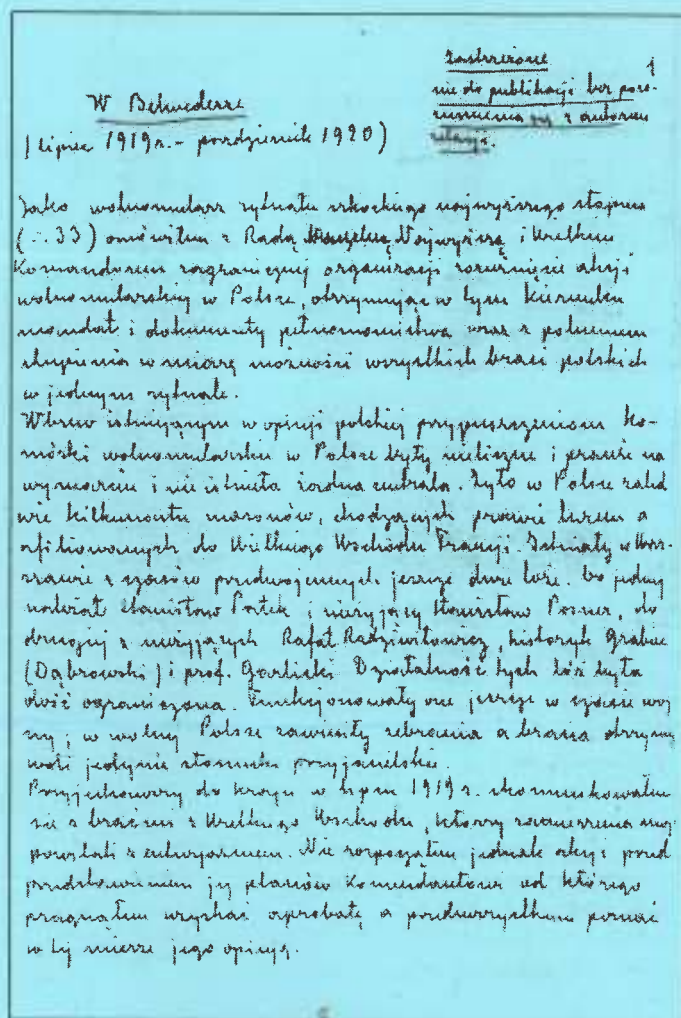 1
zastrzeżone
nie do publikacji bez poro-
zumienia się z autorem
relacji.
W Belwederze
(lipiec 1919 r. - październik 1920)
Jako wolnomularz rytuału szkockiego najwyższego stopnia
(∴33) omówiłem z Radą Najwyższą i Wielkim
Komandorem zagranicznej organizacji rozwinięcie akcji
wolnomularskiej w Polsce, otrzymując w tym kierunku
mandat i dokumenty pełnomocnictwa wraz z poleceniem
skupienia w miarę możności wszystkich braci polskich
w jednym rytuale.
Wbrew istniejącym w opinji polskiej przypuszczeniom ko-
mórki wolnomularskie w Polsce były nieliczne i prawie na
wymarciu i nie istniała żadna centrala. Było w Polsce zaled
wie kilkunastu masonów, chodzących prawie luzem a
afiliowanych do Wielkiego Wschodu Francji. Istniały w War-
szawie z czasów przedwojennych jeszcze dwie loże. Do jednej
należał Stanisław Patek i nieżyjący Stanisław Posner, do
drugiej z nieżyjących Rafał Radziwiłłowicz, historyk Grabiec
(Dąbrowski) i prof. Garlicki. Działalność tych lóż była
dość ograniczona. Funkcjonowały one jeszcze w czasie woj
ny; w wolnej Polsce zawiesiły zebrania a bracia utrzymy
wali jedynie stosunki przyjacielskie.
Przyjechawszy do kraju w lipcu 1919 r. skomunikowałem
się z braćmi z Wielkiego Wschodu, którzy zamierzenia moje
powitali z entuzjazmem. Nie rozpocząłem jednak akcji przed
przedstawieniem jej planów Komendantowi od którego
pragnąłem uzyskać aprobatę a przedewszystkiem poznać
w tej mierze jego opinję.